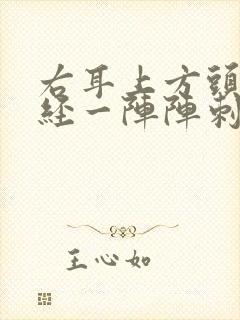 右耳上方頭
經一陣陣刺
王心如